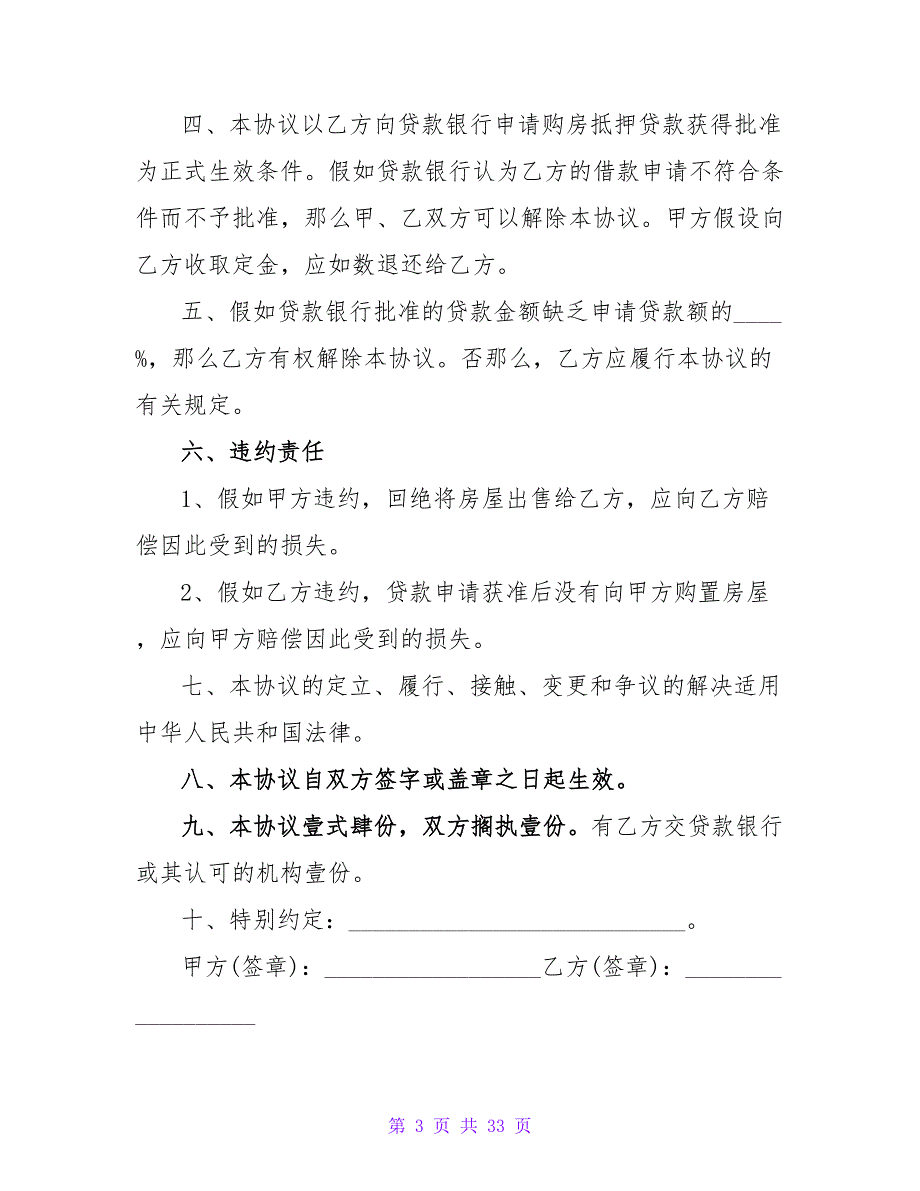 四、本协议以乙方向贷款银行申请购房抵押贷款获得批准
为正式生效条件。假如贷款银行认为乙方的借款申请不符合条
件而不予批准，那么甲、乙双方可以解除本协议。甲方假设向
乙方收取定金，应如数退还给乙方。
五、假如贷款银行批准的贷款金额缺乏申请贷款额的____
%，那么乙方有权解除本协议。否那么，乙方应履行本协议的
有关规定。
六、违约责任
1、假如甲方违约，回绝将房屋出售给乙方，应向乙方赔
偿因此受到的损失。
2、假如乙方违约，贷款申请获准后没有向甲方购置房屋
，应向甲方赔偿因此受到的损失。
七、本协议的定立、履行、接触、变更和争议的解决适用
中华人民共和国法律。
八、本协议自双方签字或盖章之日起生效。
九、本协议壹式肆份，双方搁执壹份。有乙方交贷款银行
或其认可的机构壹份。
十、特别约定：____________________________。
甲方(签章)：__________________乙方(签章)：________
__________
第 3 页 共 33 页